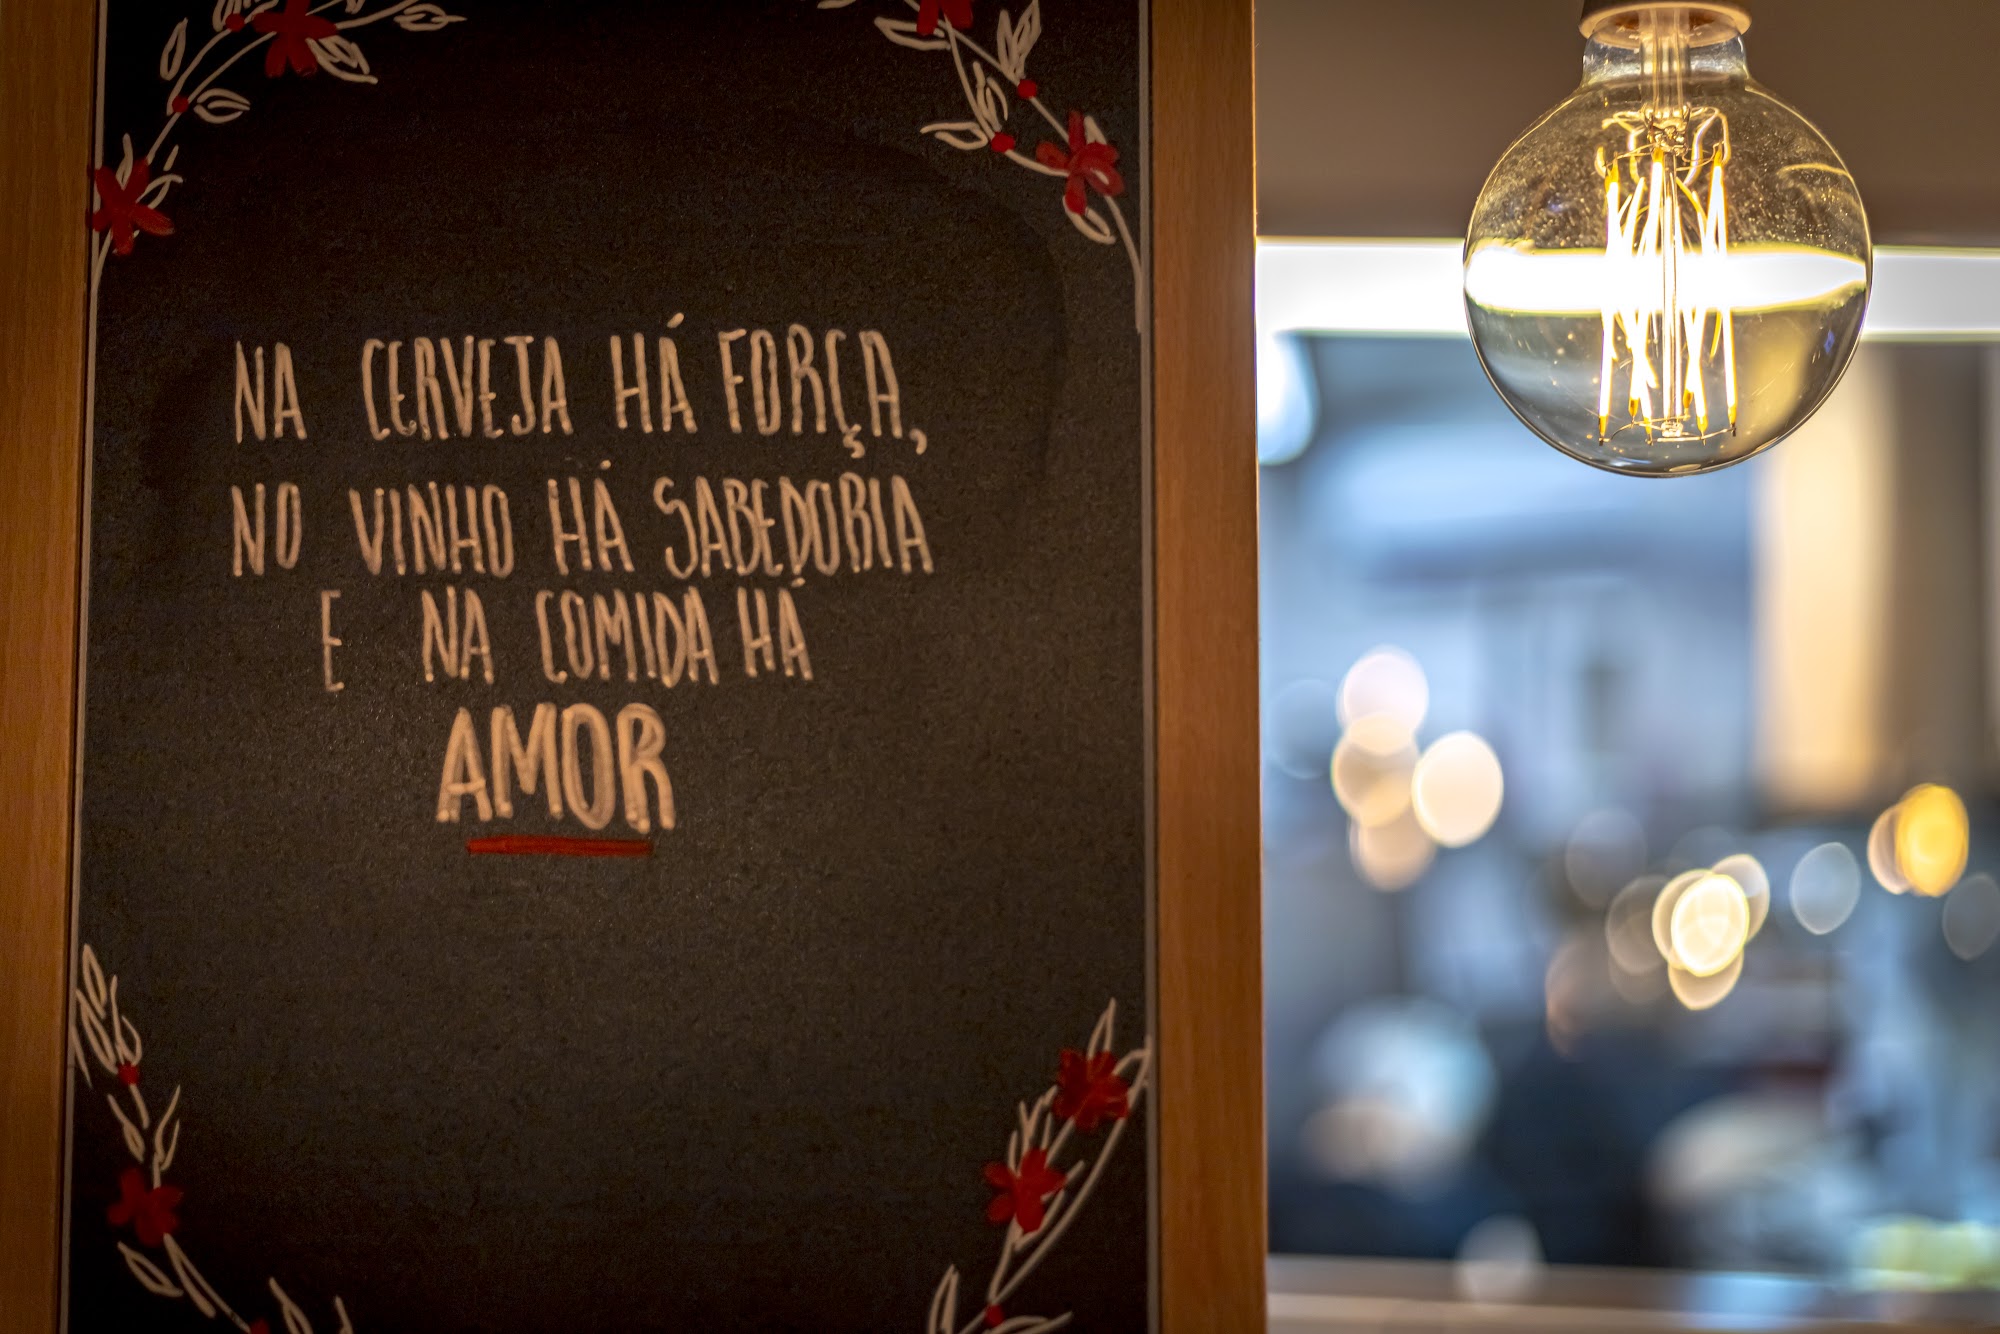 NA CERVEJA HÁ FORÇA,
NO VINHO HÁ SABEDORIA
E NA COMIDA HÁ
AMOR